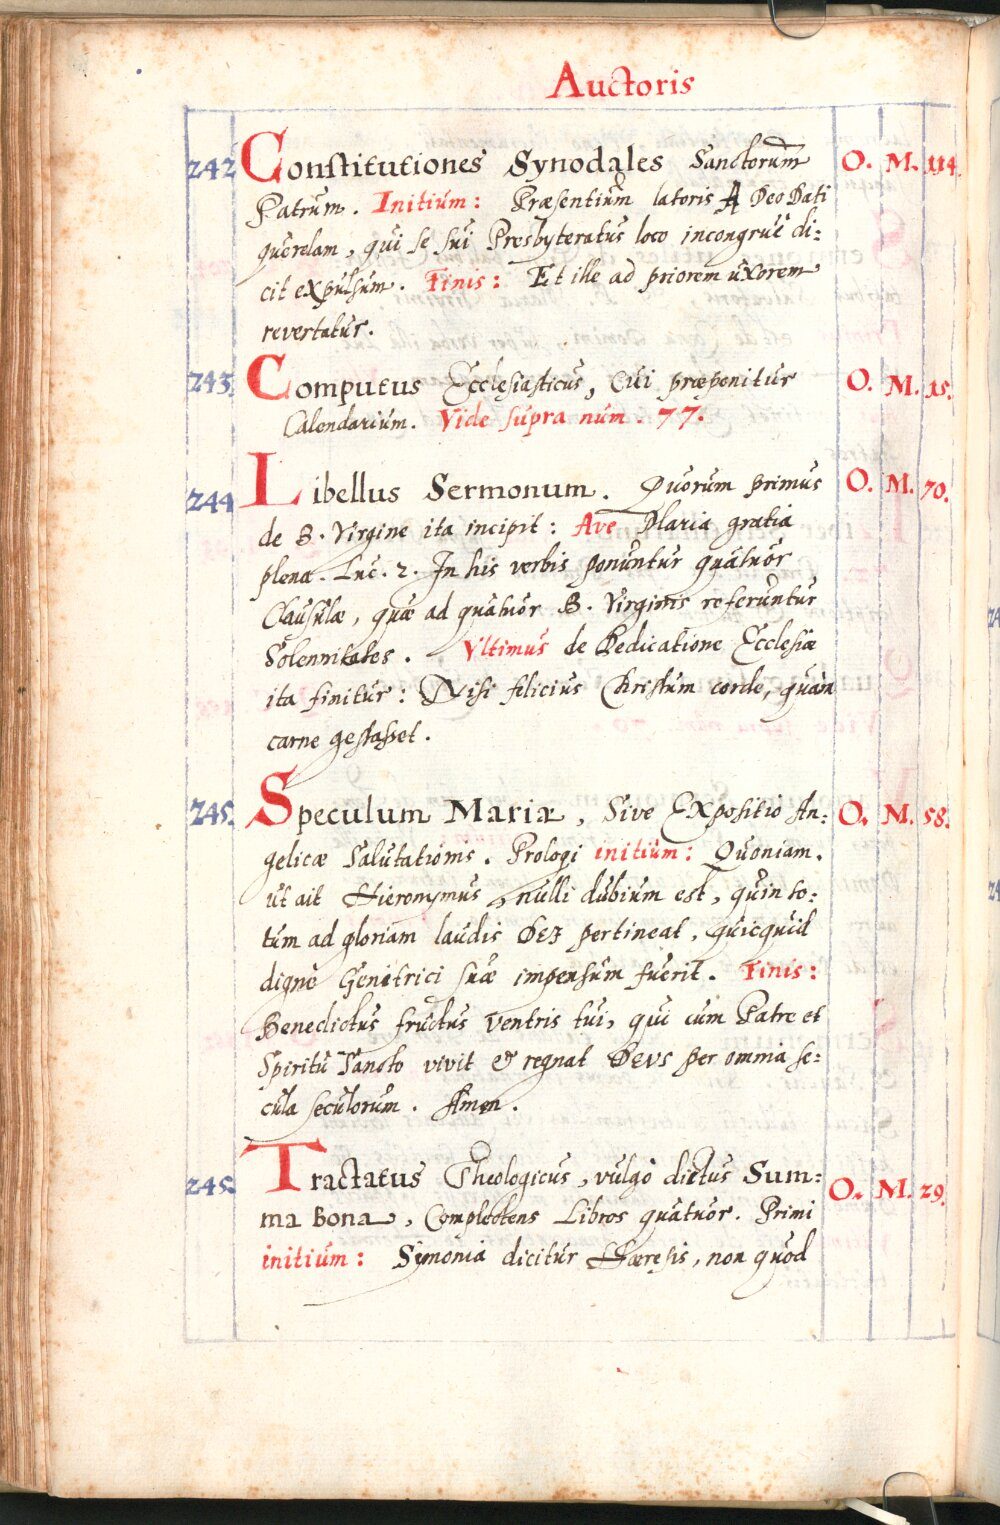 Auctoris
242 Constitutiones Synodales Sanctorum O. M. 114.
Patrum. Initium: Præsentium latoris A Deo Dati
querelam, qui se sui Presbyteratus loco incongruè di:
cit expulsum. Finis: Et ille ad priorem uxorem
revertatur.
243. Computus Ecclesiasticus, Cui præponitur O. M. 15.
Calendarium. Vide supra num. 77.
244 Libellus Sermonum. Quorum primus O. M. 70.
de B. Virgine ita incipit: Ave Maria gratia
plena. Luc. 2. In his verbis ponuntur quatuor
Clausulæ, quæ ad quatuor B. Virginis referuntur
Solennitates. Ultimus de Dedicatione Ecclesiæ
ita finitur: Nisi felicius Christum corde, quàm
carne gestasset.
245. Speculum Mariæ, Sive Expositio An: O. M. 58.
gelicæ Salutationis. Prologi initium: Quoniam.
ut ait Hieronymus, nulli dubium est, quin to:
tum ad gloriam laudis DEI pertineat, quicquid
dignè Genitrici suæ impensum fuerit. Finis:
Benedictus fructus ventris tui, qui cum Patre et
Spiritu Sancto vivit & regnat Deus per omnia se:
cula seculorum. Amen.
245. Tractatus Theologicus, vulgò dictus Sum: O. M. 29.
ma Bona, Complectens Libros quatuor. Primi
initium: Symonia dicitur Hæresis, non quòd